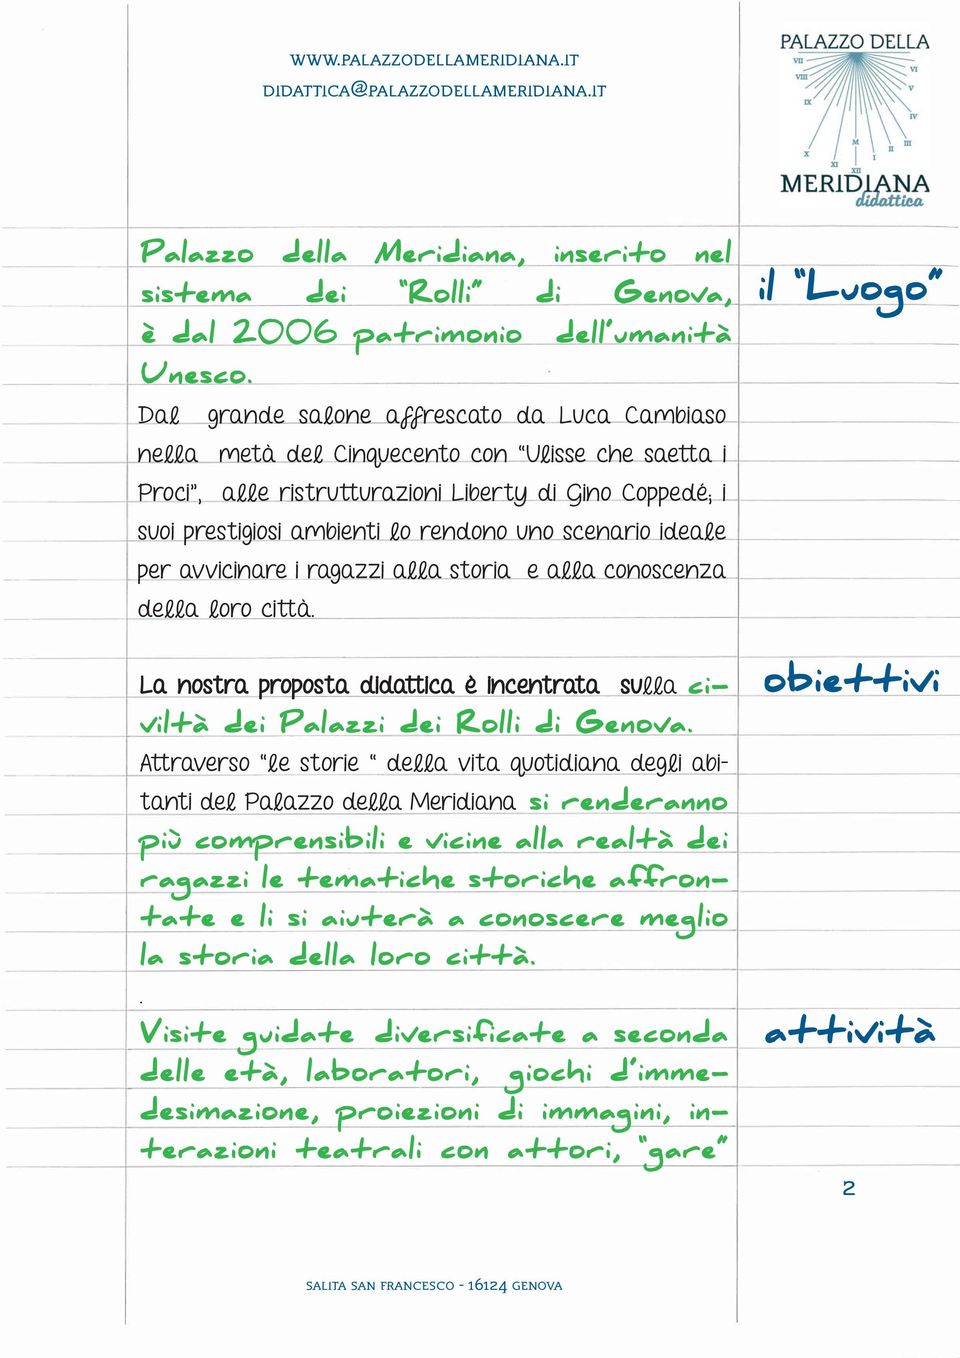 WWW.PALAZZODELLAMERIDIANA.IT
DIDATTICA@PALAZZODELLAMERIDIANA.IT
PALAZZO DELLA
VII
VI
VIII
V
IX
IV
M
III
X
II
XI
I
XII
MERIDIANA
didattica
Palazzo della Meridiana, inserito nel
sistema dei "Rolli" di Genova,
è dal 2006 patrimonio dell'umanità
Unesco.
il "Luogo"
Dal grande salone affrescato da Luca Cambiaso
nella metà del Cinquecento con "Ulisse che saetta i
Proci", alle ristrutturazioni Liberty di Gino Coppedé; i
suoi prestigiosi ambienti lo rendono uno scenario ideale
per avvicinare i ragazzi alla storia e alla conoscenza
della loro città.
La nostra proposta didattica è incentrata sulla ci-
viltà dei Palazzi dei Rolli di Genova.
obiettivi
Attraverso "le storie " della vita quotidiana degli abi-
tanti del Palazzo della Meridiana si renderanno
più comprensibili e vicine alla realtà dei
ragazzi le tematiche storiche affron-
tate e li si aiuterà a conoscere meglio
la storia della loro città.
.
Visite guidate diversificate a seconda
delle età, laboratori, giochi d'imme-
desimazione, proiezioni di immagini, in-
terazioni teatrali con attori, "gare"
attività
2
SALITA SAN FRANCESCO - 16124 GENOVA